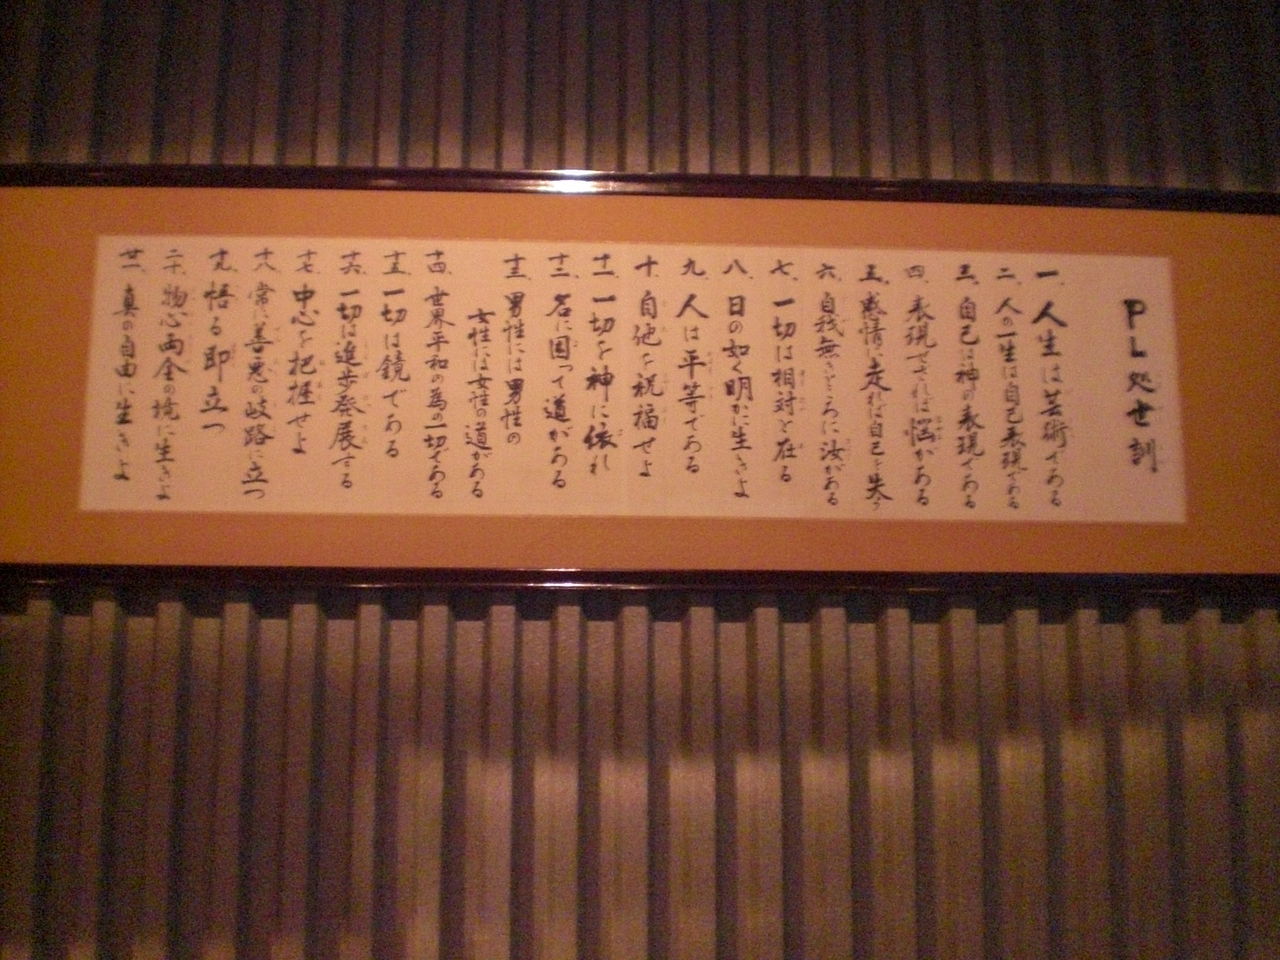 PL処世訓
一、人生は芸術である
二、人の一生は自己表現である
三、自己は神の表現である
四、表現せざれば悩がある
五、感情に走れば自己を失う
六、自我無きところに汝がある
七、一切は相対と在る
八、日の如く明かに生きよ
九、人は平等である
十、自他を祝福せよ
十一、一切を神に依れ
十二、名に因って道がある
十三、男性には男性の
女性には女性の道がある
十四、世界平和の為の一切である
十五、一切は鏡である
十六、一切は進歩発展する
十七、中心を把握せよ
十八、常に善悪の岐路に立つ
十九、悟る即立つ
二十、物心両全の境に生きよ
廿一、真の自由に生きよ